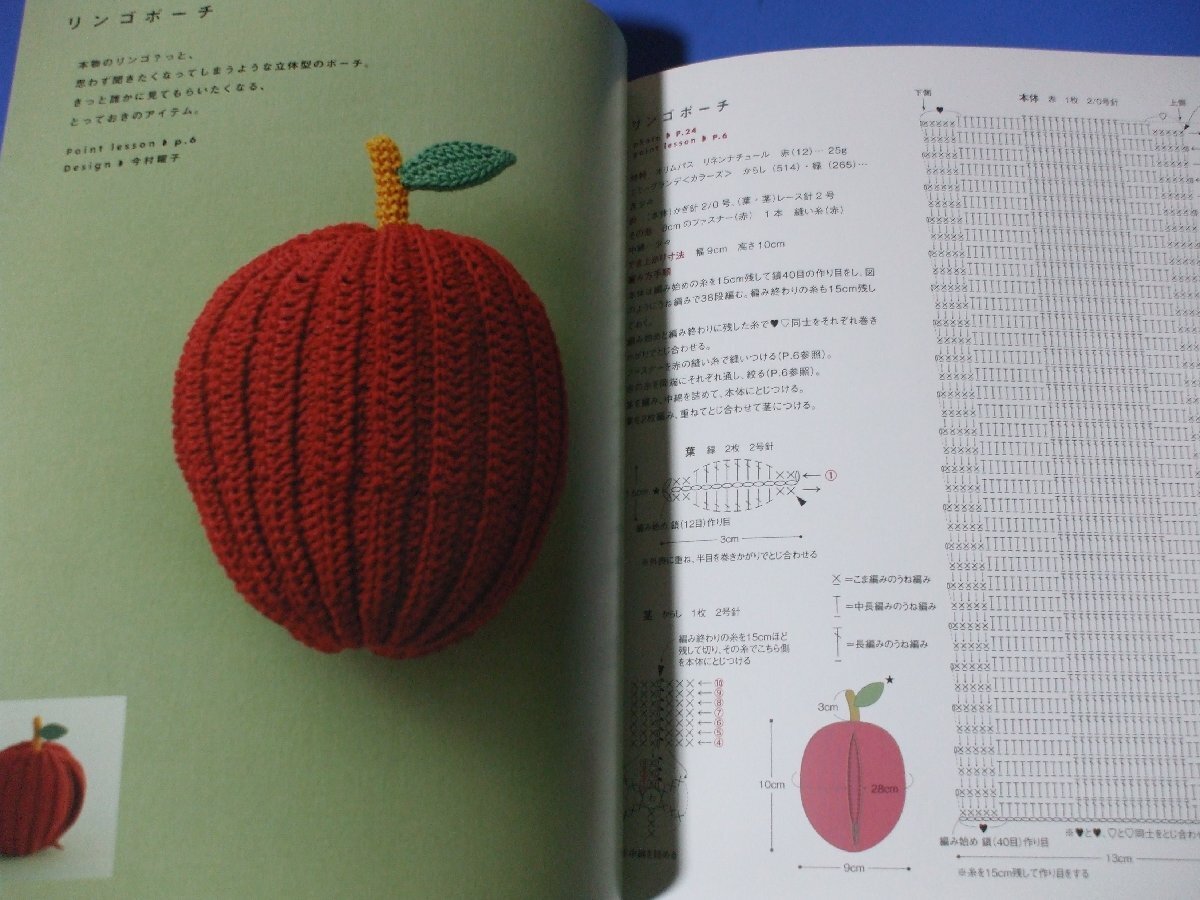 リンゴポーチ
本物のリンゴ?っと、
思わず聞きたくなってしまうような立体型のポーチ。
きっと誰かに見てもらいたくなる、
とっておきのアイテム。
Point lesson p.6
Design 今村曜子
リンゴポーチ
p.24
Point lesson p.6
リネンナチュール 赤(12)… 25g
<カラーズ> からし(514)・緑(265)…
かぎ針2/0号、(葉・茎)レース針2号
cmのファスナー(赤) 1本 縫い糸(赤)
寸法 幅9cm 高さ10cm
編み始めの糸を15cm残して鎖40目の作り目をし、図
のようにうね編みで38段編む。編み終わりの糸も15cm残し
ておく。
編み始めと編み終わりに残した糸で♥♡同士をそれぞれ巻き
かがりでとじ合わせる。
ファスナーを赤の縫い糸で縫いつける(P.6参照)。
の糸を両端にそれぞれ通し、絞る(P.6参照)。
編み、中綿を詰めて、本体にとじつける。
2枚編み、重ねてとじ合わせて茎につける。
葉 緑 2枚 2号針
①
1.5cm ★
編み始め 鎖(12目)作り目
3cm
※外表に重ね、半目を巻きかがりでとじ合わせる
茎 からし 1枚 2号針
編み終わりの糸を15cmほど
残して切り、その糸でこちら側
を本体にとじつける
⑩
⑨
⑧
⑦
⑥
⑤
④
=こま編みのうね編み
=中長編みのうね編み
=長編みのうね編み
★
3cm
10cm
28cm
9cm
下側
♥
本体 赤 1枚 2/0号針
上側
♡
♥
編み始め 鎖(40目)作り目
※♥と♥、♡と♡同士をとじ合わ
13cm
※糸を15cm残して作り目をする